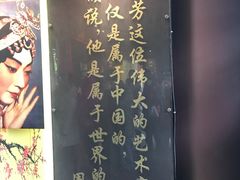 芳这位伟大的艺术
仅是属于中国的，
说，他是属于世界的